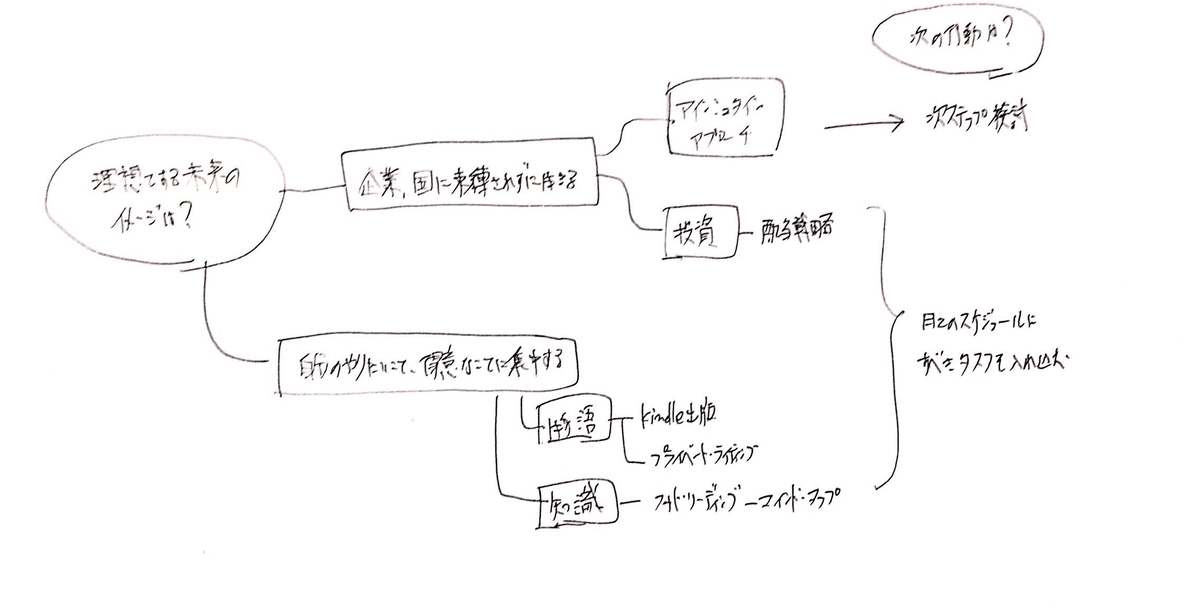 次の行動は?
アインシュタイン
アプローチ
次ステップ検討
理想とする未来の
イメージは?
企業、国に束縛されずに生きる
投資
配当戦略
月ごとのスケジュールに
すべきタスクを入れ込む
自分のやりたいこと、得意なことに集中する
物語
kindle出版
プライベート・ライティング
知識
フォト・リーディング ー マインド・マップ